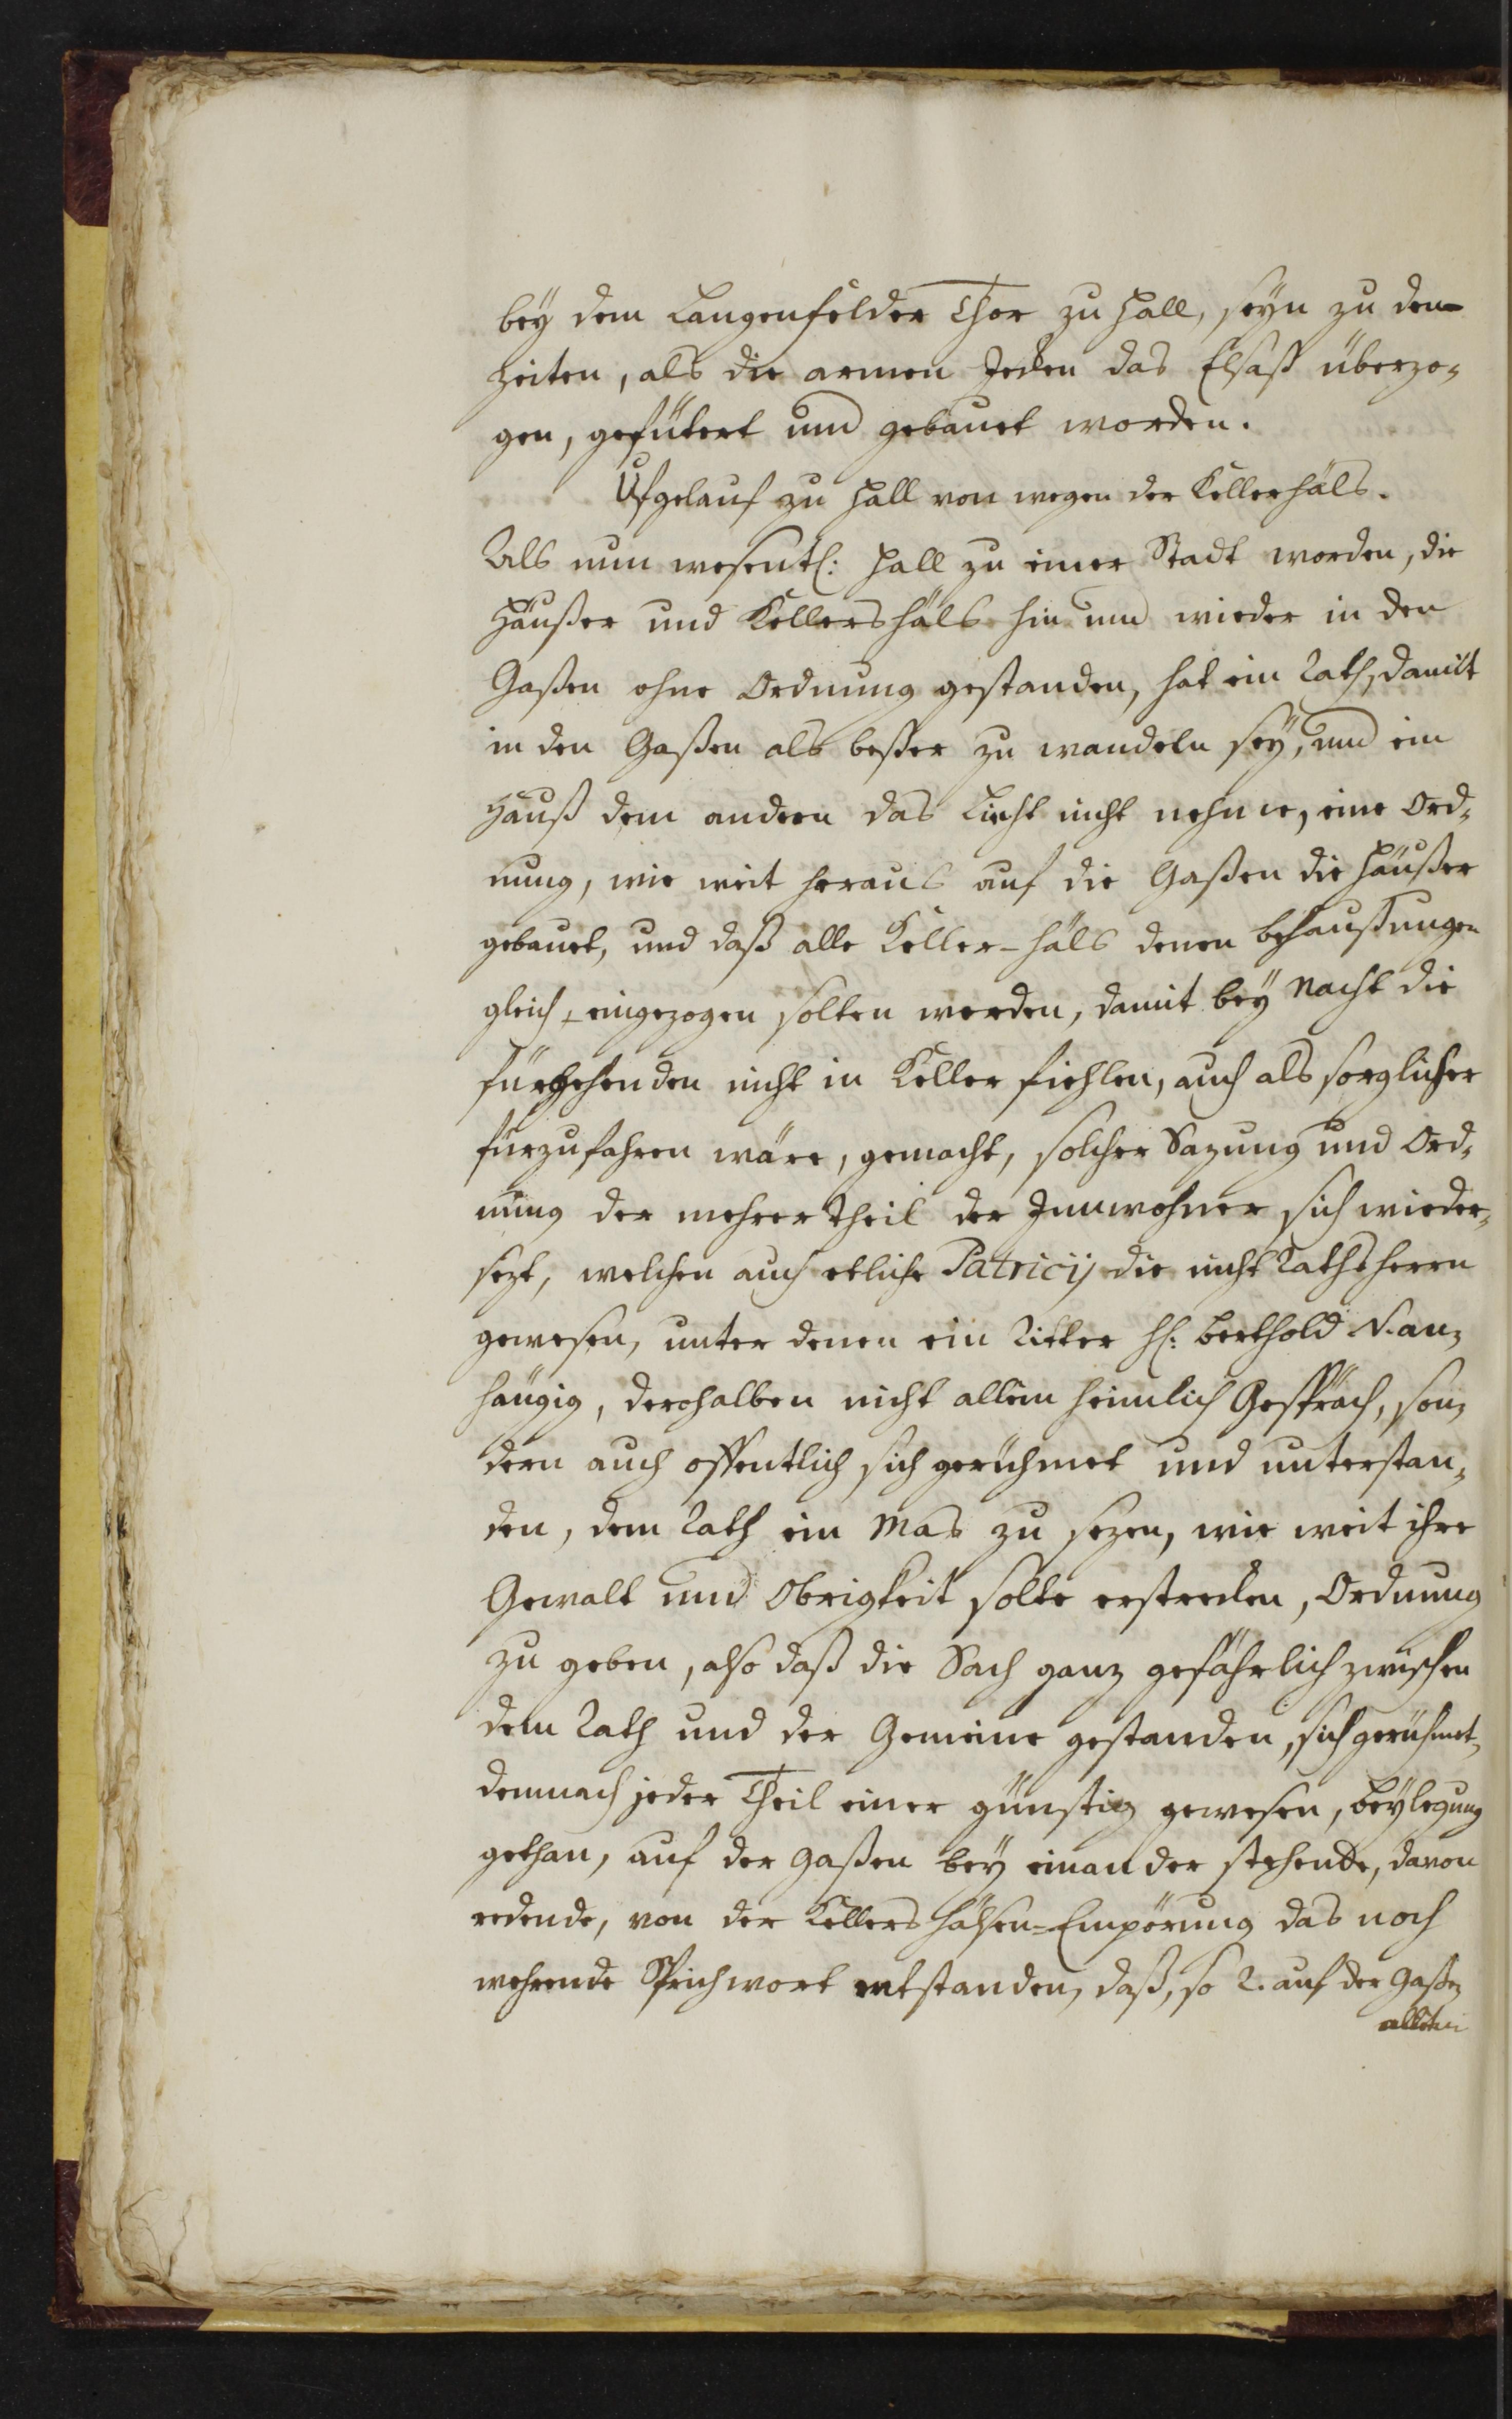 bey dem Langenfelder Thor zu Hall, seyn zu den
Zeiten, als die armen Jecken das Elsaß überzo¬
gen, gefütert und gebauet worden.
Ufgelauf zu Hall von wegen der Kellerhäls.
Als nun wesentl: Hall zu einer Stadt worden, die
Häußer und Kellershäls hin und wieder in den
Gaßen ohne Ordnung gestanden, hat ein Rath, damit
in den Gaßen als beßer zu wandeln sey, und ein
Hauß dem andern das Liecht nicht nehme, eine Ord¬
nung, wie weit heraus auf die Gaßen die Häußer
gebauet, und daß alle Keller-häls denen behaußungen
gleich, eingezogen solten werden, damit bey Nacht die
fürgehenden nicht in Keller fiehlen, auch als sorglicher
fürzufahren wäre, gemacht, solcher Sazung und Ord¬
nung der mehrer theil der Innwohner sich wieder¬
sezt, welchen auch etliche Patricij die nicht Rathsherrn
gewesen, unter denen ein Ritter H: berthold N. an¬
hängig, derohalben nicht allein heimlich Gespräch, son¬
dern auch offentlich sich gerühmet und unterstan¬
den, dem Rath ein Mas zu sezen, wie weit ihre
Gewalt und Obrigkeit solte erstrecken, Ordnung
zu geben, also daß die Sach ganz gefährlich zwischen
dem Rath und der Gemeine gestanden, sich gerühmet,
demnach jeder Theil einer günstig gewesen, beylegung
gethan, auf der Gaßen bey einander stehende, davon
redende, von der Kellershälsen-Empörung das noch
wehrende Sprichwort entstanden, daß, so 2. auf der Gaßen
allein